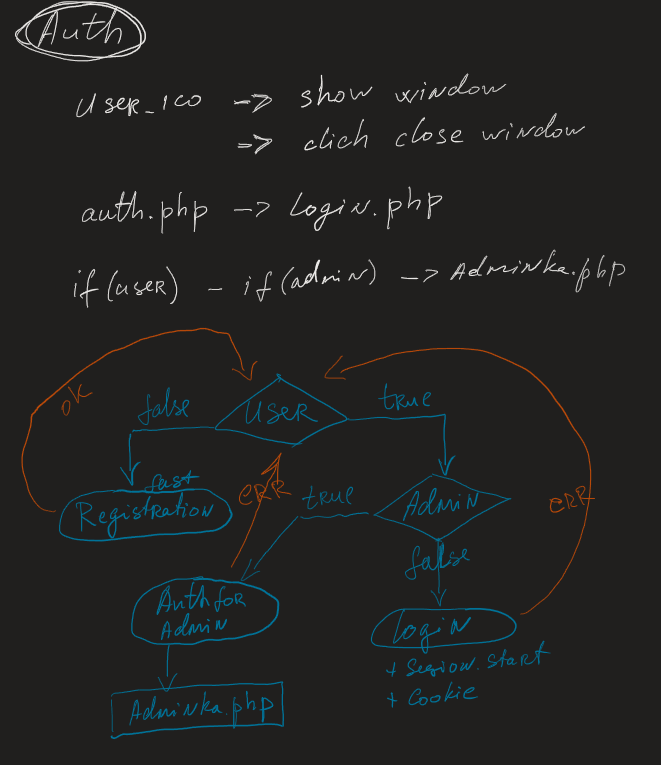 Auth
user_ico -> show window
=> clich close window
auth.php -> login.php
if (user) - if (admin) -> Adminka.php
OK
false
user
true
fast
Registration
ERR
true
Admin
ERR
false
Auth for
Admin
login
+ Session.start
+ Cookie
Adminka.php